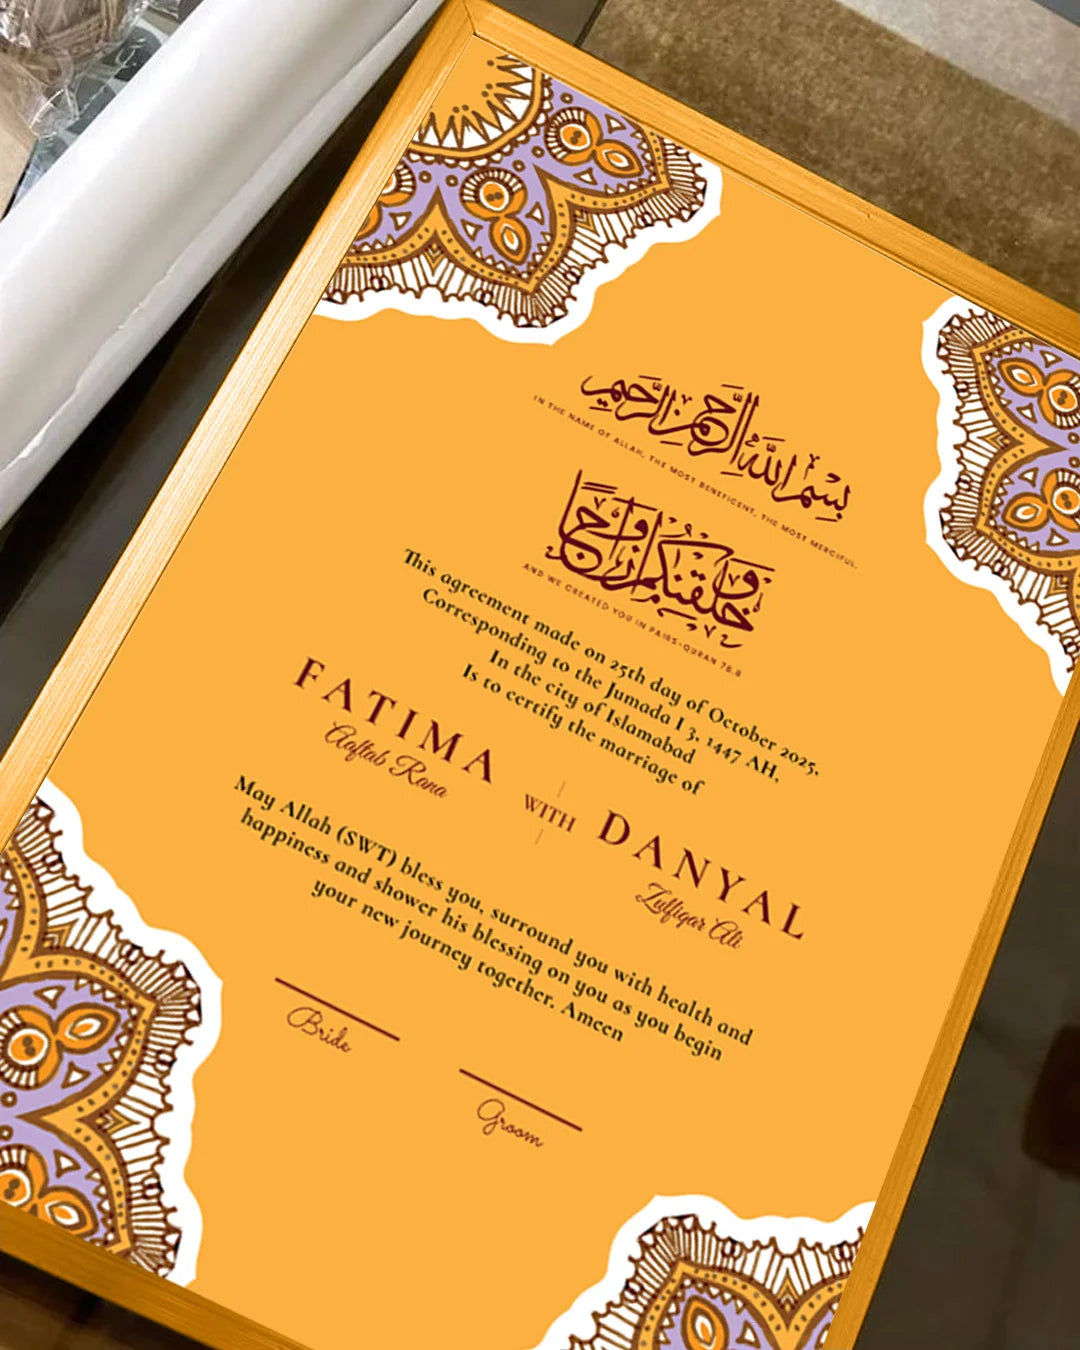 بِسْمِ اللهِ الرَّحْمٰنِ الرَّحِيمِ
IN THE NAME OF ALLAH, THE MOST BENEFICENT, THE MOST MERCIFUL.
وَخَلَقْنٰكُمْ اَزْوَاجًا
AND WE CREATED YOU IN PAIRS-QURAN 78:8
This agreement made on 25th day of October 2025,
Corresponding to the Jumada I 3, 1447 AH,
In the city of Islamabad
Is to certify the marriage of
FATIMA
Aaftab Rana
WITH
DANYAL
Zulfiqar Ali
May Allah (SWT) bless you, surround you with health and
happiness and shower his blessing on you as you begin
your new journey together. Ameen
Bride
Groom